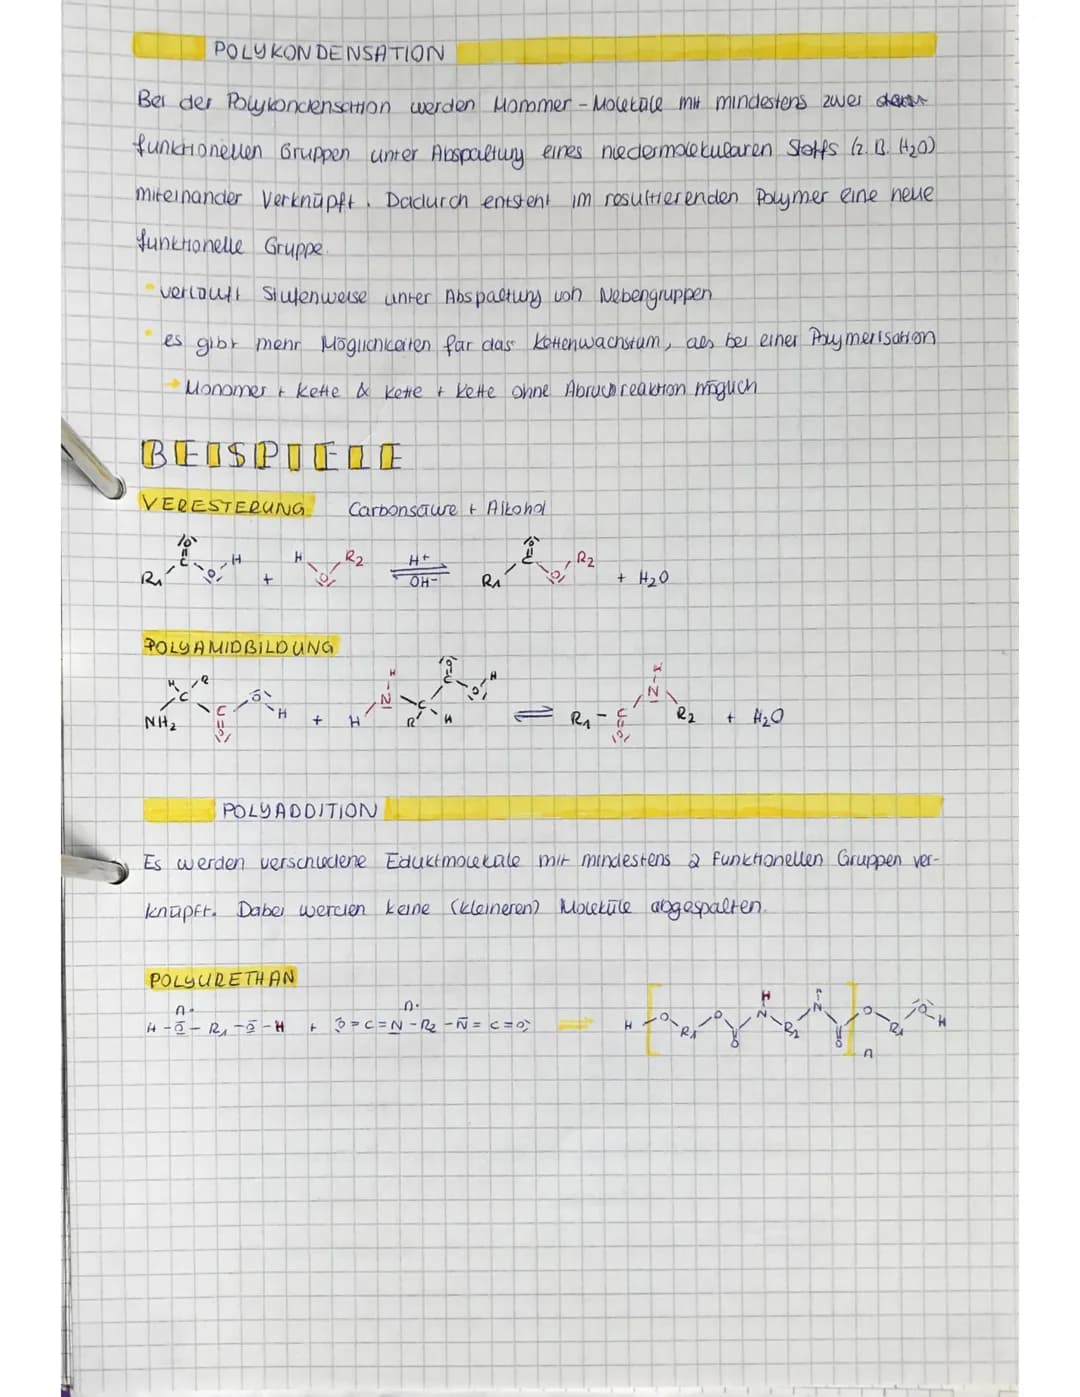 POLYKONDENSATION
Bei der Polykondensation werden Monomer-Moleküle mit mindestens zwei
funktionellen Gruppen unter Abspaltung eines niedermolekularen Stoffs (z.B. H2O)
miteinander Verknüpft. Dadurch entsteht im resultierenden Polymer eine neue
funktionelle Gruppe.
verläuft Stufenweise unter Abspaltung von Nebengruppen
es gibt mehr Möglichkeiten für das Kettenwachstum, als bei einer Polymerisation
→ Monomer + Kette & Kette + Kette ohne Abruchreaktion möglich
BEISPIELE
VERESTERUNG Carbonsäure + Alkohol
R1 C O O H + H O R2 H+ OH- R1 C O O R2 + H2O
POLYAMIDBILDUNG
NH2 H C R C O O H + H N H C R H C O O H ⇌ R1 - C O N H R2 + H2O
POLYADDITION
Es werden verschiedene Eduktmoleküle mit mindestens 2 funktionellen Gruppen ver-
knüpft. Dabei werden keine (kleineren) Moleküle abgespalten.
POLYURETHAN
n· n·
H-O-R1-O-H + O=C=N-R2-N=C=O → H [O R1 O O N H R2 N O]n O R1 O H